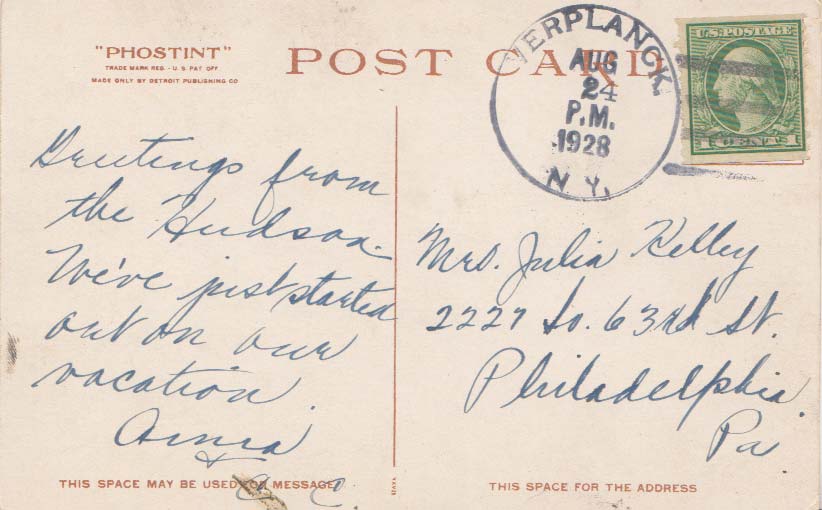 "PHOSTINT"
TRADE MARK REG. - U.S. PAT. OFF.
MADE ONLY BY DETROIT PUBLISHING CO
POST CARD
VERPLANCK.
AUG
24
P.M.
1928
N.Y.
U.S. POSTAGE
1 CENT 1
Greetings from
the Hudson.
We've just started
out on our
vacation.
Anna
+
C. C.
Mrs. Julia Kelley
2227 So. 63rd St.
Philadelphia.
Pa.
THIS SPACE MAY BE USED FOR MESSAGE
THIS SPACE FOR THE ADDRESS